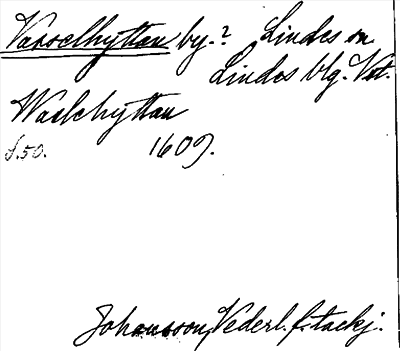 Vasselhyttan by.? Lindes sn.
Lindes blg. Vst.
Waslehyttan
s. 50. 1609.
Johansson, Vederl. f. tackj.